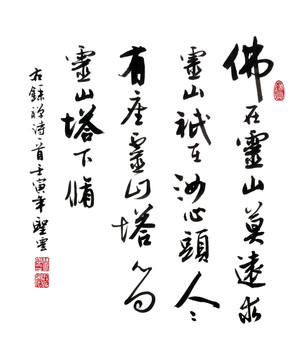 佛在靈山莫遠求
靈山祇在汝心頭人〻
有座靈山塔好向
靈山塔下脩
右錄禪詩首壬寅年聖雲